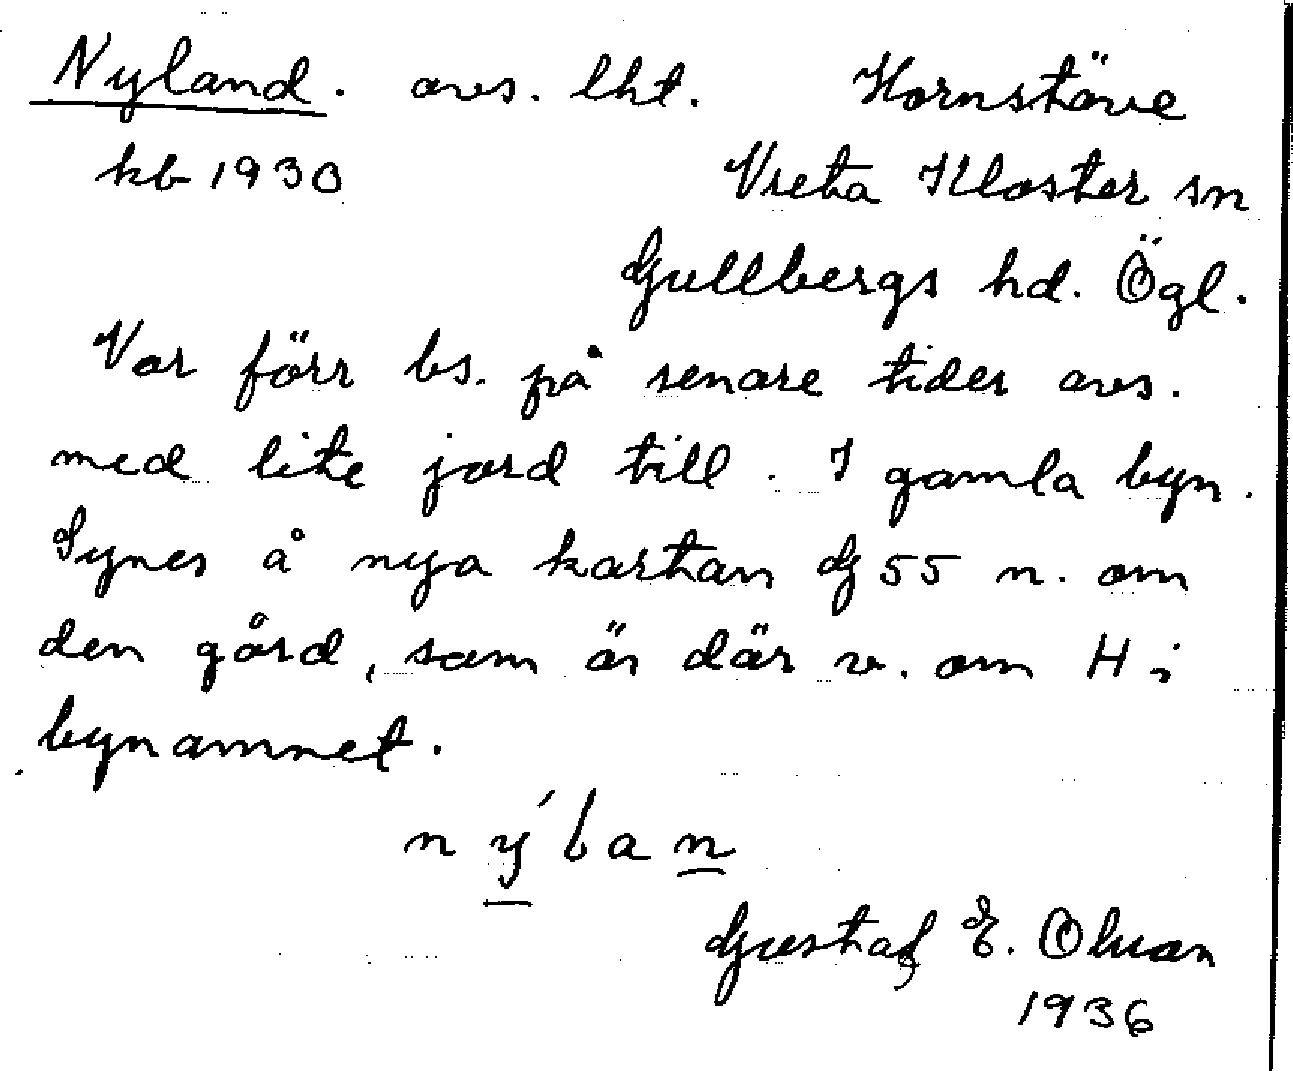 Nyland. avs. lht. Hornstäve
kb 1930 Vreta Kloster sn
Gullbergs hd. Ögl.
Var förr bs. på senare tider avs.
med lite jord till. I gamla byn.
Synes å nya kartan G 55 n. om
den gård, som är där v. om H i
bynamnet.
n ý l a n
Gustaf E. Olsson
1936